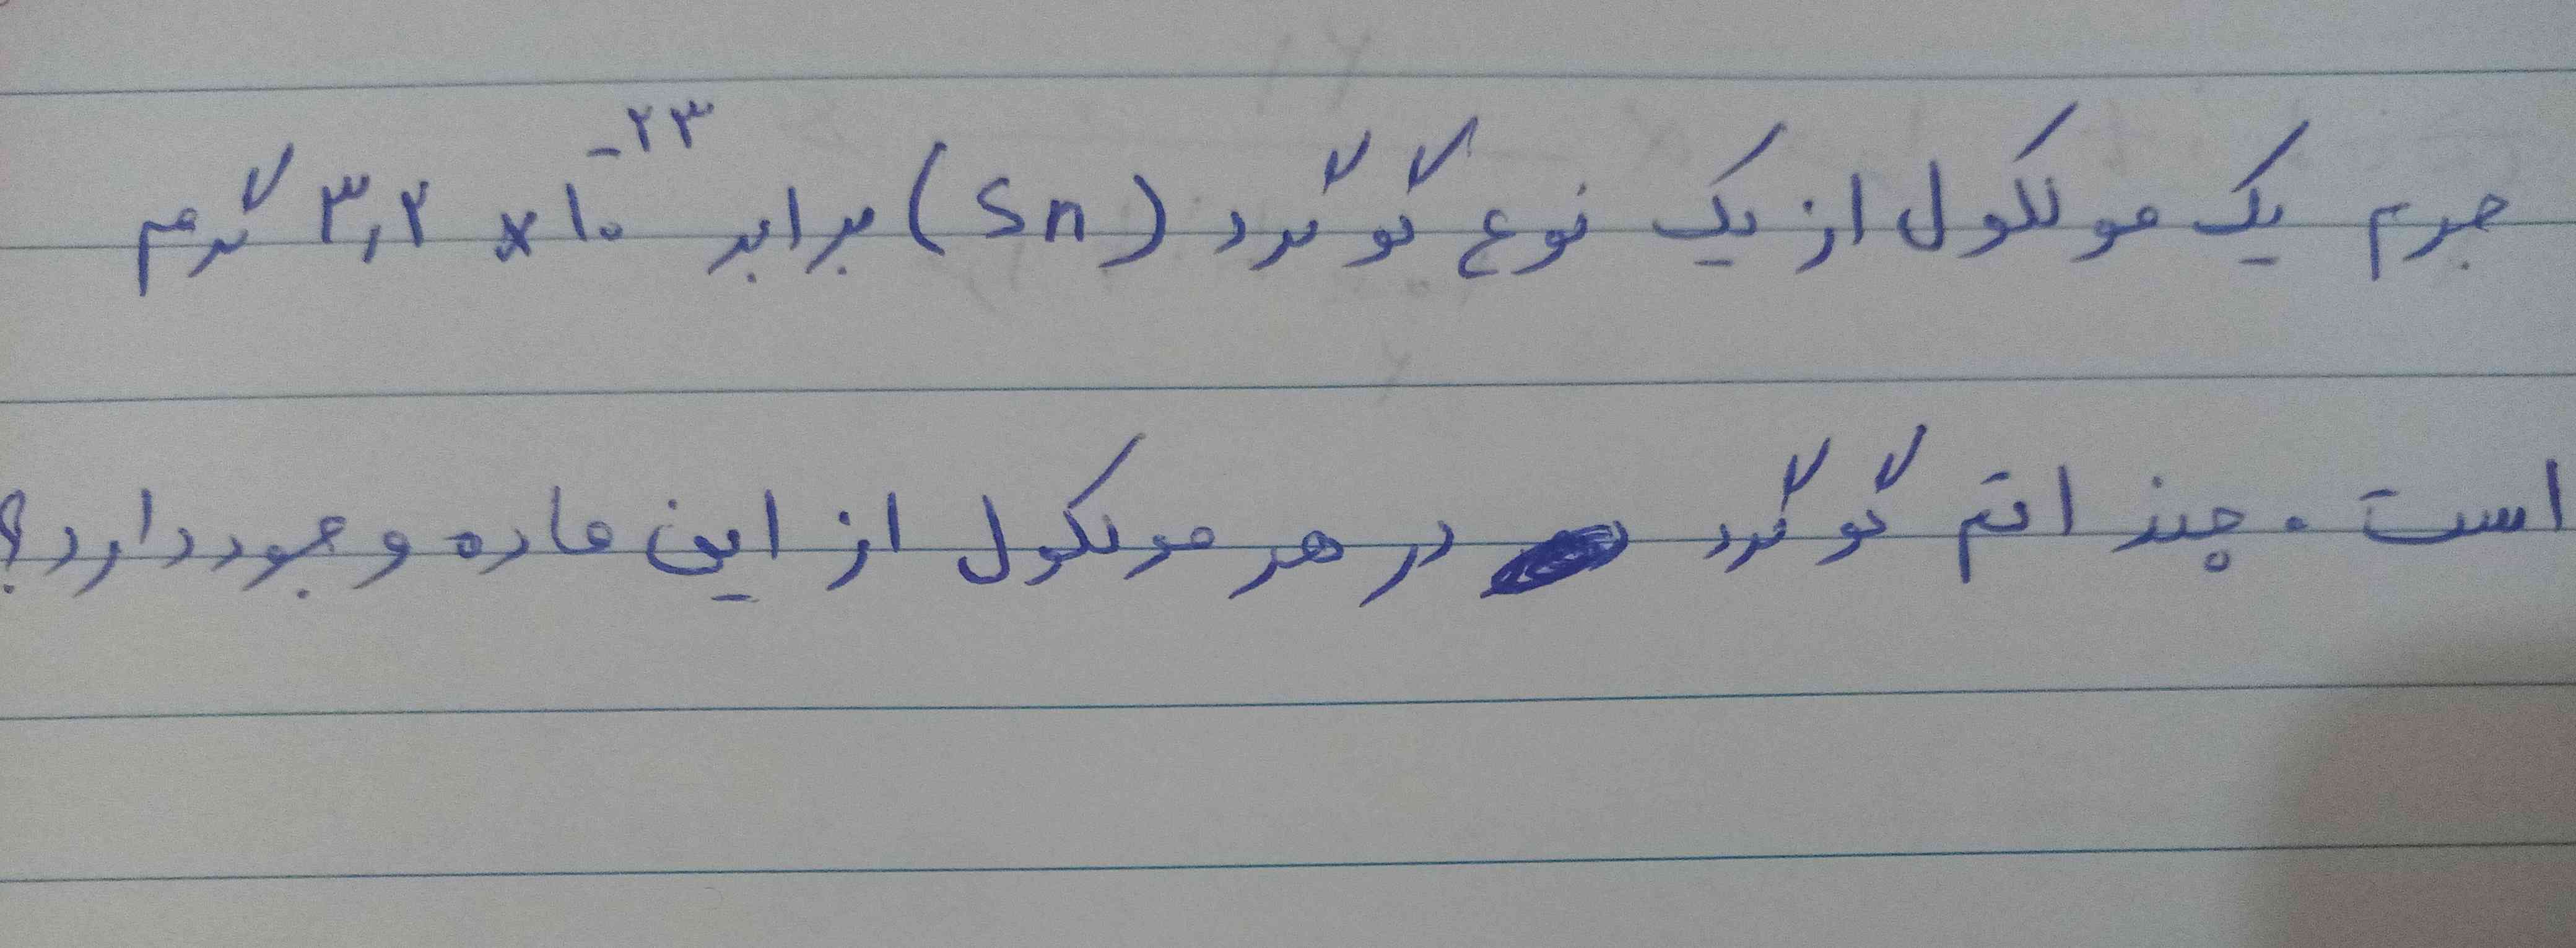 جرم یک مولکول از یک نوع گوگرد (Sn) برابر ۳٫۲ × ۱۰^-۲۳ گرم
است. چند اتم گوگرد در هر مولکول از این ماده وجود دارد؟